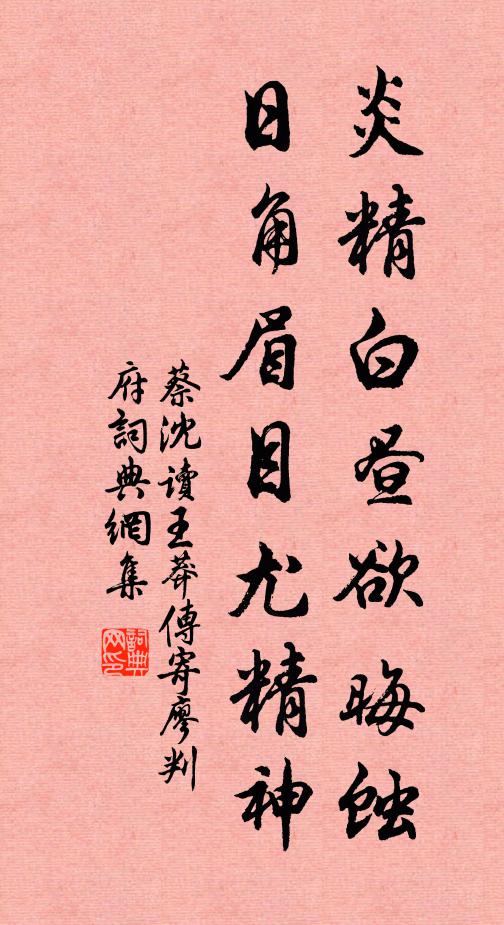 炎精白昼欲晦蚀
日角眉目尤精神
蔡沈读王莽傳寄廖判
府詞典網集
詞典網印